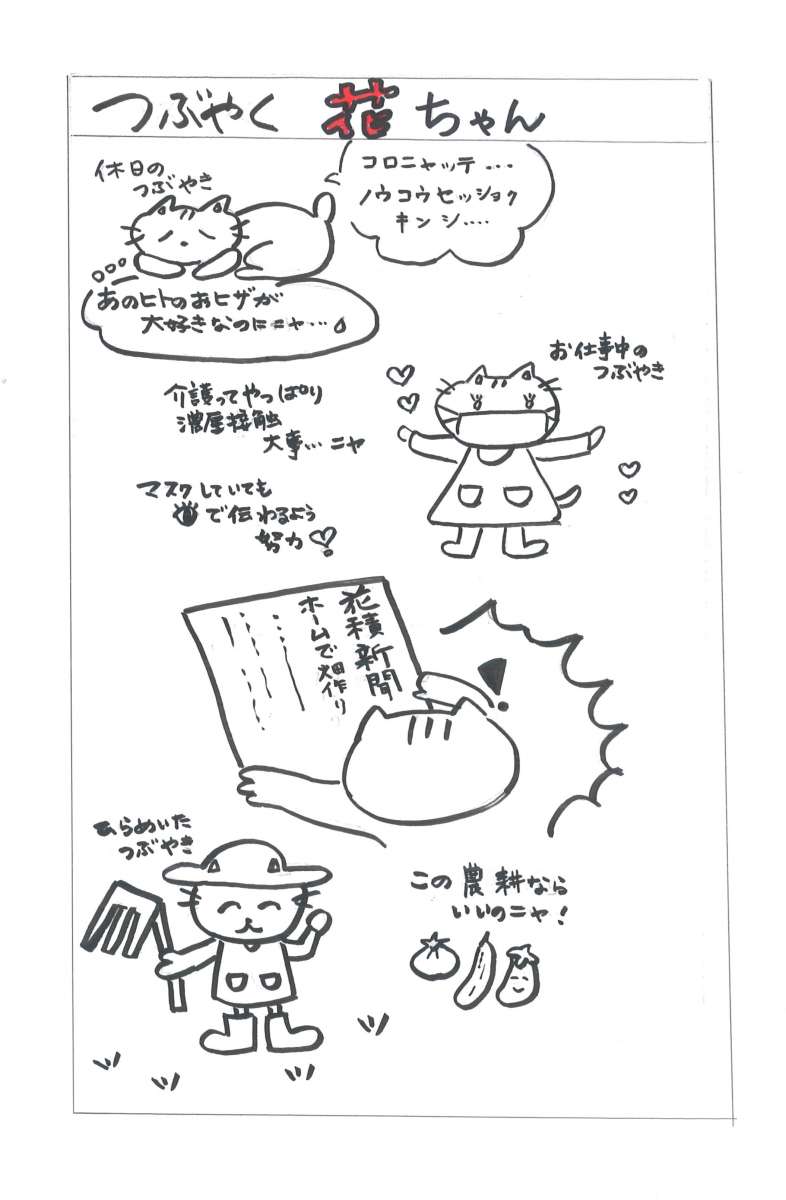 つぶやく 花 ちゃん
休日の
つぶやき
コロニャッテ....
ノウコウセッショク
キンシ....
あのヒトのおヒザが
大好きなのにニャ...
お仕事中の
つぶやき
介護ってやっぱり
濃厚接触
大事...ニャ
マスクしていても
で伝わるよう
努力
花積新聞
ホームで畑作り
ひらめいた
つぶやき
この農耕なら
いいのニャ!